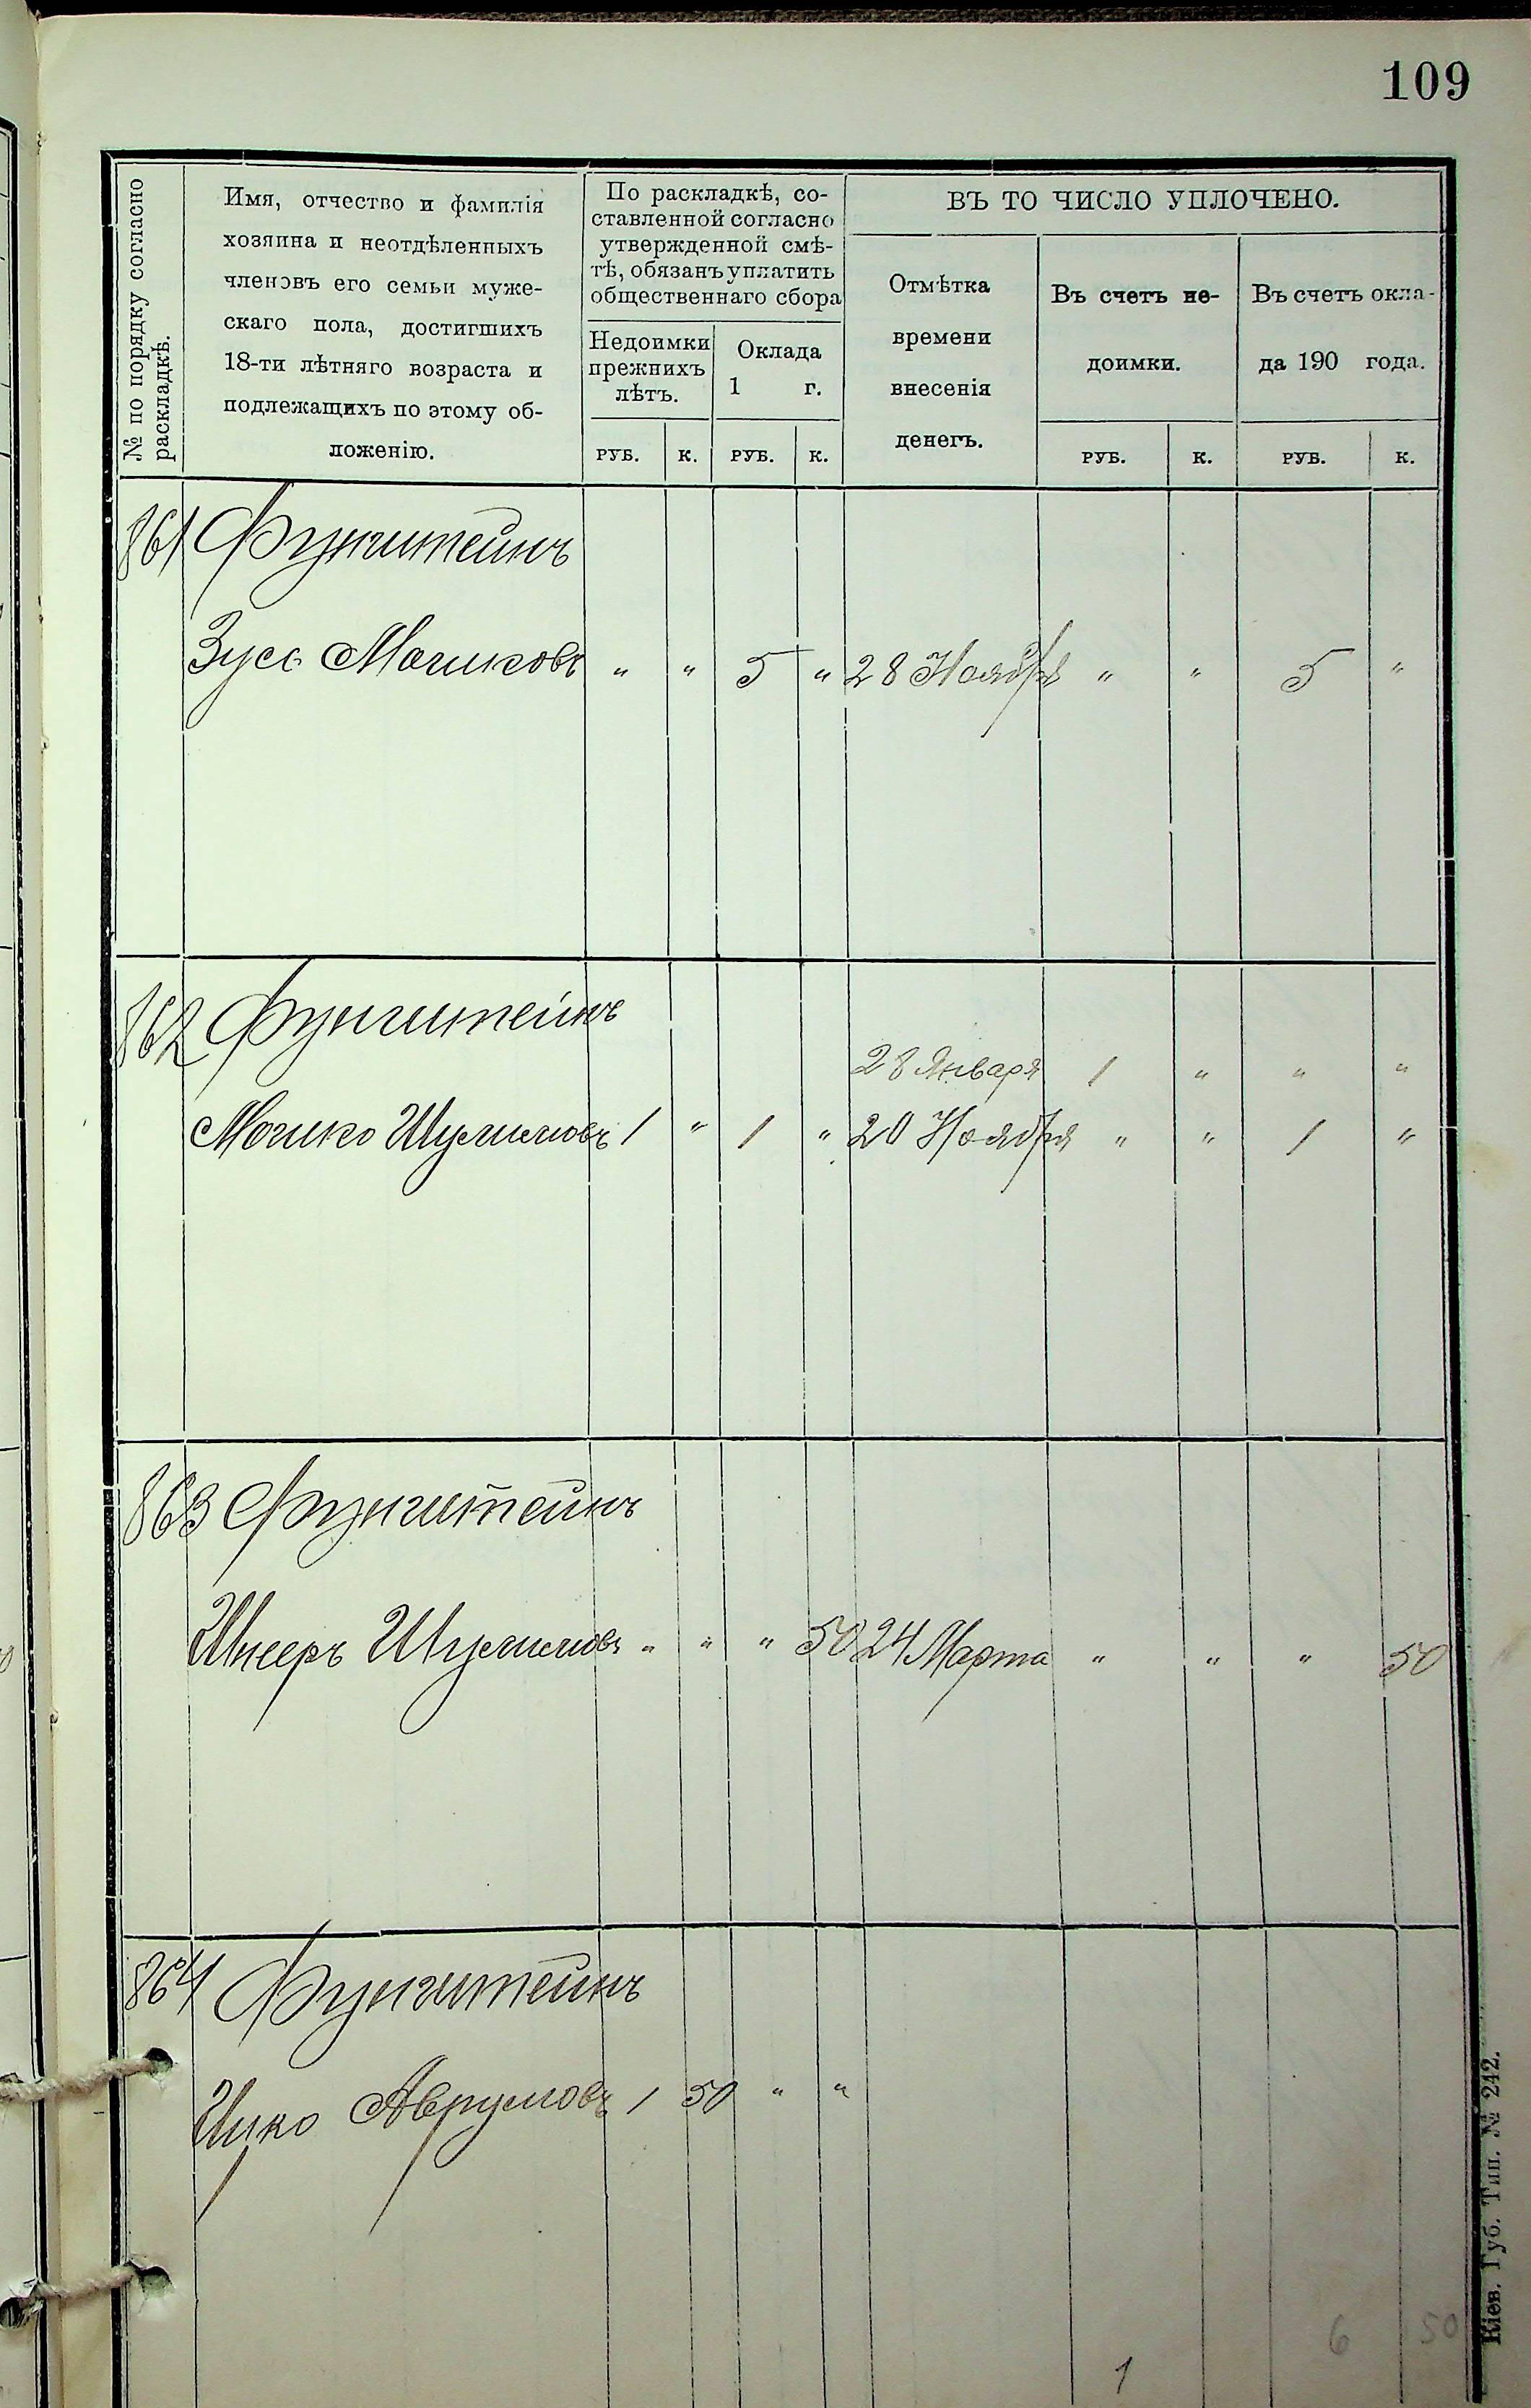 109
№ по порядку согласно
раскладкѣ.
Имя, отчество и фамилія
хозяина и неотдѣленныхъ
членовъ его семьи муже-
скаго пола, достигшихъ
18-ти лѣтняго возраста и
подлежащихъ по этому об-
ложенію.
По раскладкѣ, со-
ставленной согласно
утвержденной смѣ-
тѣ, обязанъ уплатить
общественнаго сбора
Недоимки
прежнихъ
лѣтъ.
Оклада
1 г.
ВЪ ТО ЧИСЛО УПЛОЧЕНО.
Отмѣтка
времени
внесенія
денегъ.
Въ счетъ не-
доимки.
Въ счетъ окла-
да 190 года.
РУБ. К. РУБ. К. РУБ. К. РУБ. К.
861 Фунштейнъ
Зусь " " 5 " 28 Ноября " " 5 "
862 Фунштейнъ
28 Января 1 " " "
Шулимовъ 1 " 1 " 20 Ноября " " 1 "
863 Фунштейнъ
Шнееръ Шулимовъ " " " 50 24 Марта " " " 50
864 Фунштейнъ
Ицко Аврумовъ 1 50 " "
1 6 50
Кіев. Губ. Тип. № 242.